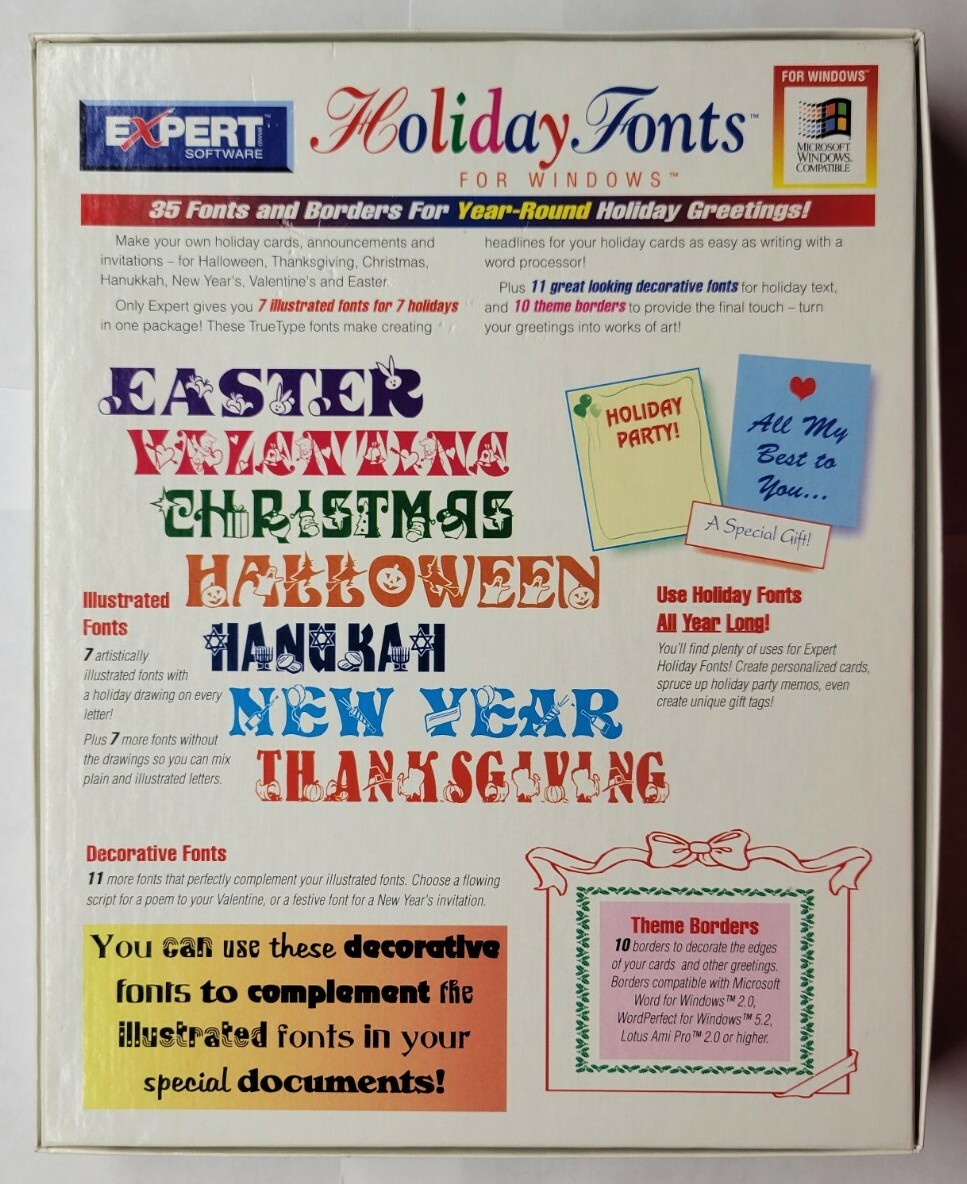 EXPERT™
SOFTWARE
Holiday Fonts™
FOR WINDOWS™
FOR WINDOWS™
MICROSOFT®
WINDOWS™
COMPATIBLE
35 Fonts and Borders For Year-Round Holiday Greetings!
Make your own holiday cards, announcements and
invitations – for Halloween, Thanksgiving, Christmas,
Hanukkah, New Year's, Valentine's and Easter.
Only Expert gives you 7 illustrated fonts for 7 holidays
in one package! These TrueType fonts make creating
headlines for your holiday cards as easy as writing with a
word processor!
Plus 11 great looking decorative fonts for holiday text,
and 10 theme borders to provide the final touch – turn
your greetings into works of art!
EASTER
VALENTINE
CHRISTMAS
HALLOWEEN
HANUKAH
NEW YEAR
THANKSGIVING
HOLIDAY
PARTY!
All My
Best to
You...
A Special Gift!
Illustrated
Fonts
7 artistically
illustrated fonts with
a holiday drawing on every
letter!
Plus 7 more fonts without
the drawings so you can mix
plain and illustrated letters.
Use Holiday Fonts
All Year Long!
You'll find plenty of uses for Expert
Holiday Fonts! Create personalized cards,
spruce up holiday party memos, even
create unique gift tags!
Decorative Fonts
11 more fonts that perfectly complement your illustrated fonts. Choose a flowing
script for a poem to your Valentine, or a festive font for a New Year's invitation.
You can use these decorative
fonts to complement the
illustrated fonts in your
special documents!
Theme Borders
10 borders to decorate the edges
of your cards and other greetings.
Borders compatible with Microsoft
Word for Windows™ 2.0,
WordPerfect for Windows™ 5.2,
Lotus Ami Pro™ 2.0 or higher.